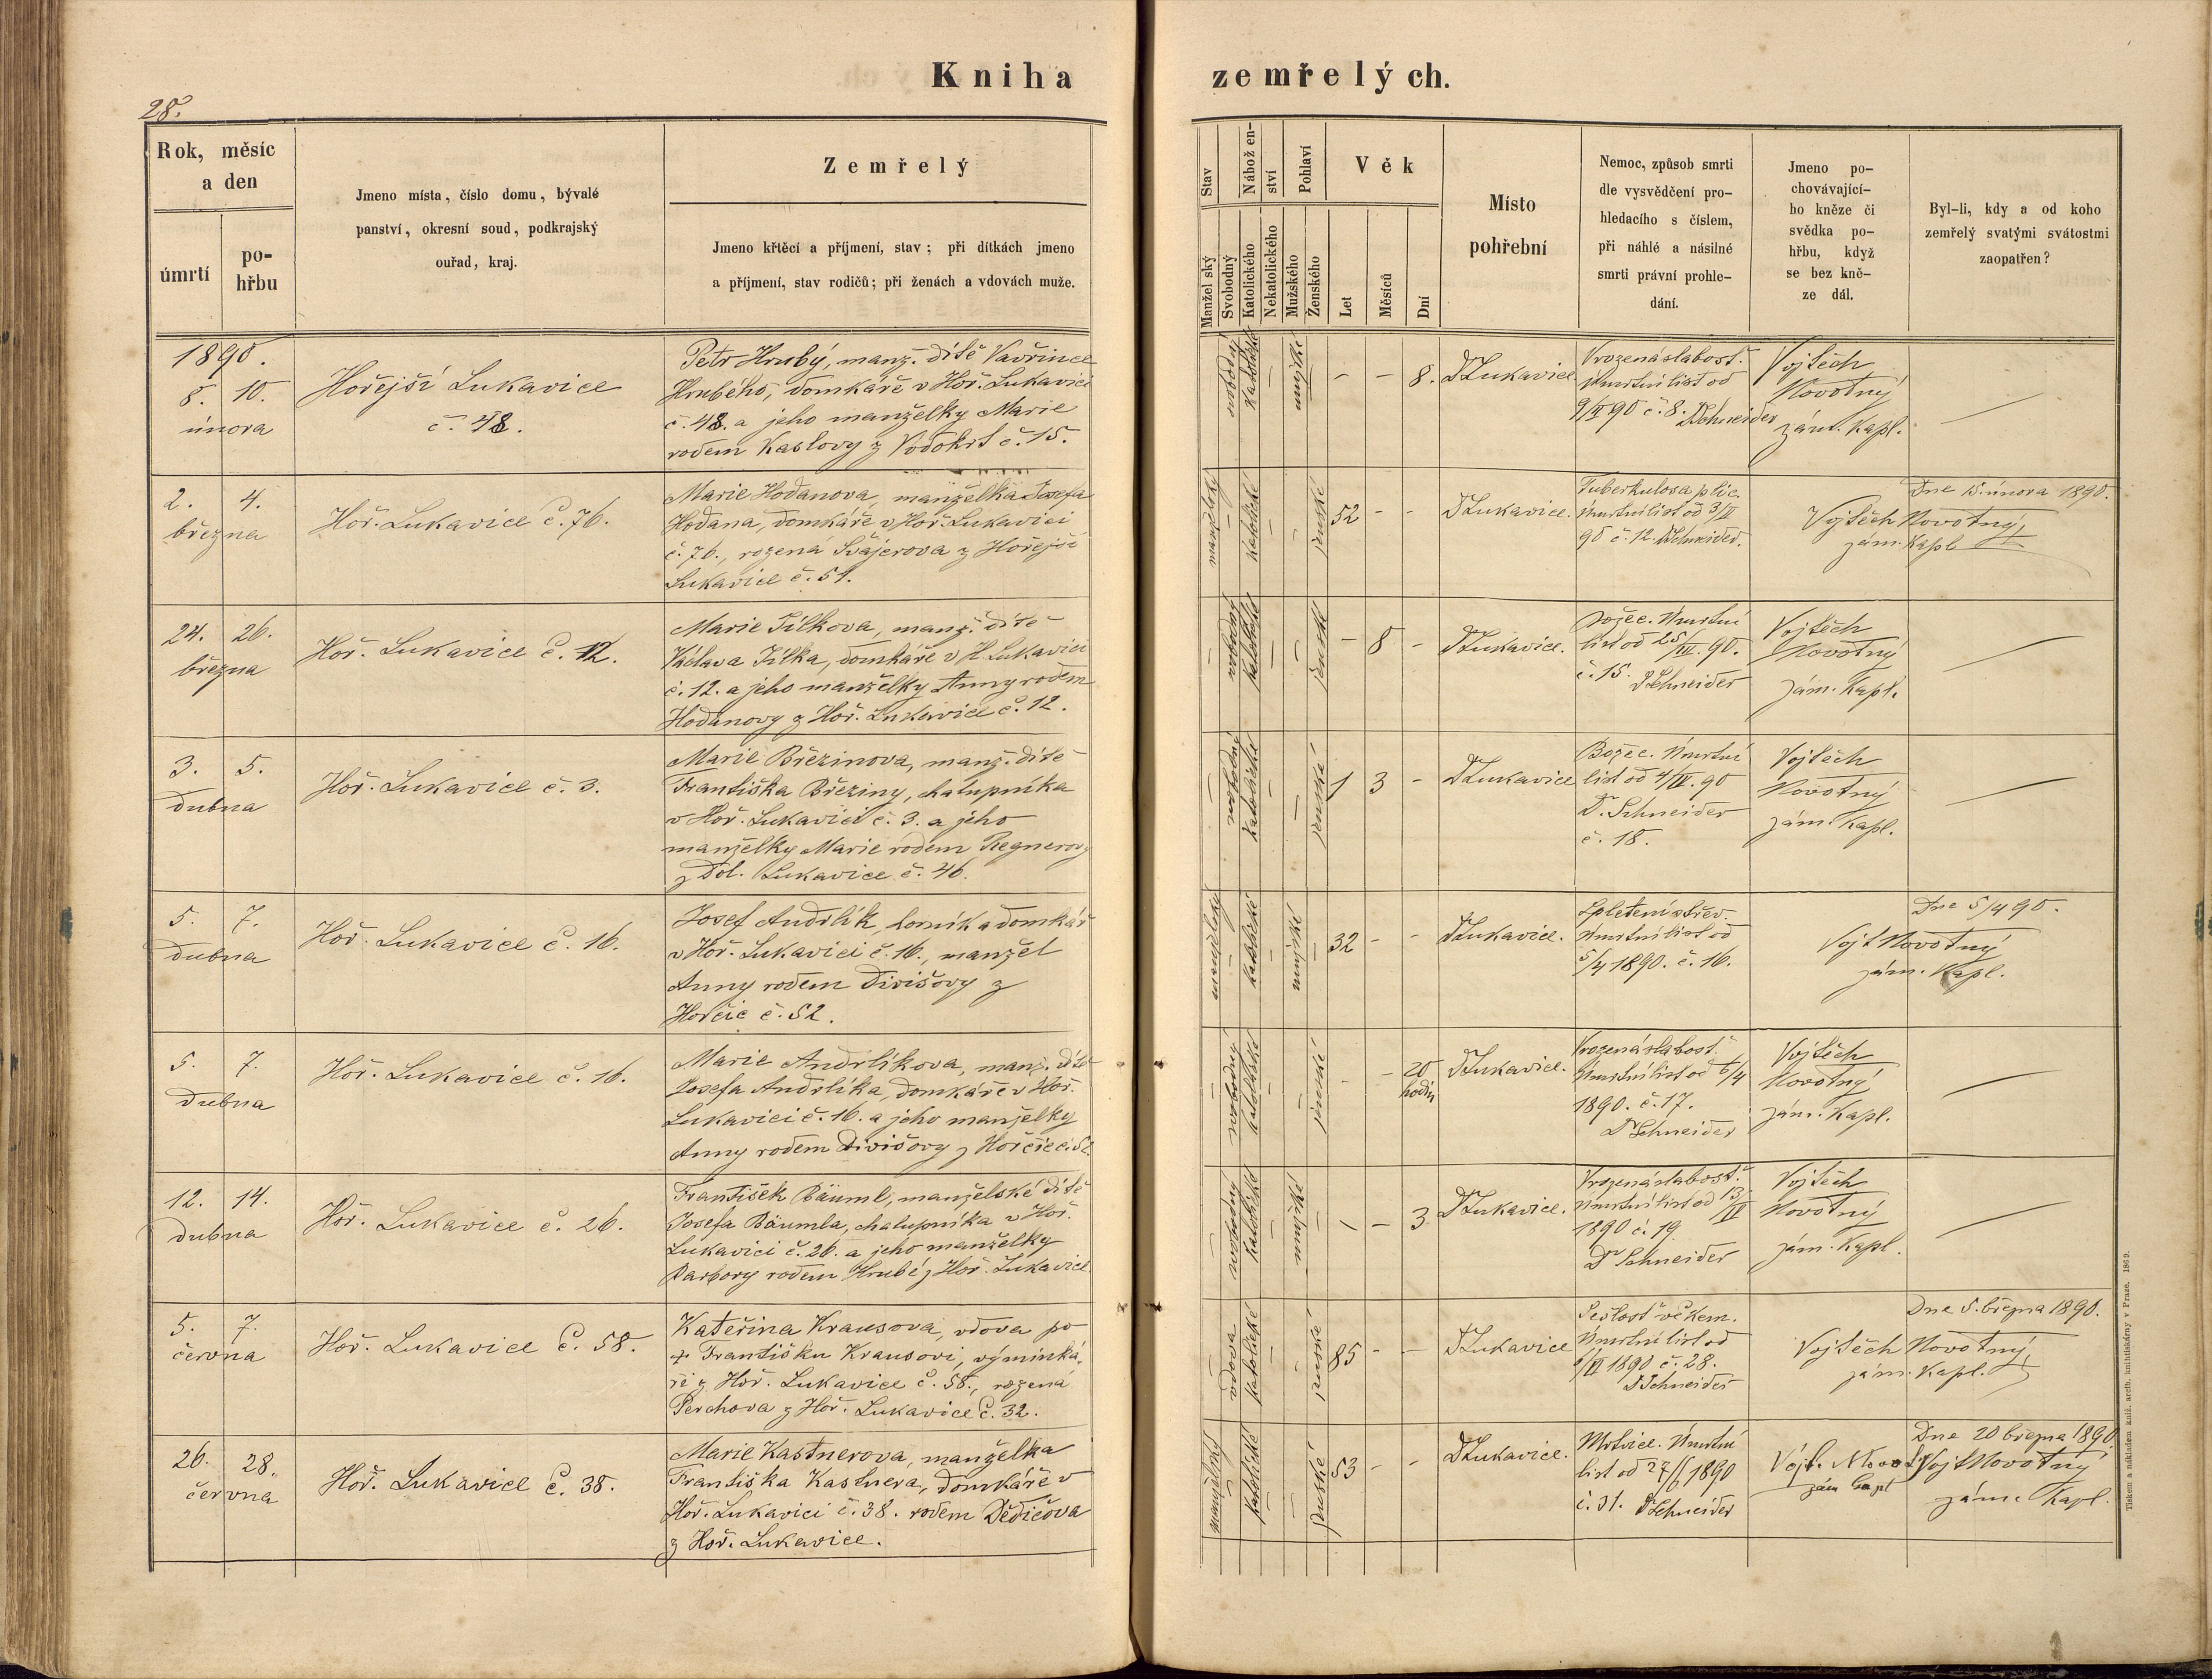 Kniha zemřelých.
28.
Rok, měsíc
a den
úmrtí
po-
hřbu
Jmeno místa, číslo domu, bývalé
panství, okresní soud, podkrajský
ouřad, kraj.
Zemřelý
Jmeno křtěcí a příjmení, stav; při dítkách jmeno
a příjmení, stav rodičů; při ženách a vdovách muže.
Stav
Manželský
Svobodný
Nábožen-
ství
Katolického
Nekatolického
Pohlaví
Mužského
Ženského
Věk
Let
Měsíců
Dní
Místo
pohřební
Nemoc, způsob smrti
dle vysvědčení pro-
hledacího s číslem,
při náhlé a násilné
smrti právní prohle-
dání.
Jmeno po-
chovávající-
ho kněze či
svědka po-
hřbu, když
se bez kně-
ze dál.
Byl-li, kdy a od koho
zemřelý svatými svátostmi
zaopatřen?
1890.
8. 10.
února
Hořejší Lukavice
č. 48.
Petr Hrubý, manž. dítě Vavřince
Hrubého, domkáře v Hoř. Lukavici
č. 48. a jeho manželky Marie
rodem Kaslovy z Vodokrt č. 15.
svobodný
katolické
mužské
- - 8.
DLukavice.
Vrozená slabost.
Úmrtní list od
9/II 90 č. 8. DSchneider
Vojtěch
Novotný
zám. kapl.
2. 4.
března
Hoř. Lukavice č. 76.
Marie Hodanova, manželka Josefa
Hodana, domkáře v Hoř. Lukavici
č. 76., rozená Švajerova z Hořejší
Lukavice č. 51.
katolické
ženské
52 - -
DLukavice.
Tuberkulosa plic.
Úmrtní list od 3/III
90 č. 12. DSchneider.
Dne 15. února 1890.
Vojtěch Novotný,
zám. kapl
24. 26.
března
Hoř. Lukavice č. 12.
Marie Jílkova, manž. dítě
Václava Jílka, domkáře v H. Lukavici
č. 12. a jeho manželky Anny rodem
Hodanovy z Hoř. Lukavice č. 12.
svobodný
katolické
ženské
- 8 -
DLukavice.
Božec. Úmrtní
list od 25/III. 90.
č. 15. DSchneider
Vojtěch
Novotný
zám. kapl.
3. 5.
dubna
Hoř. Lukavice č. 3.
Marie Březinova, manž. dítě
Františka Březiny, chalupníka
v Hoř. Lukavici č. 3. a jeho
manželky Marie rodem Regnerovy
z Dol. Lukavice č. 46.
svobodný
katolické
ženské
1 3 -
DLukavice
Božec. Úmrtní
list od 4/IV. 90
Dr. Schneider
č. 18.
Vojtěch
Novotný
zám. kapl.
5. 7.
dubna
Hoř. Lukavice č. 16.
Josef Andrlík, horník a domkář
v Hoř. Lukavici č. 16., manžel
Anny rodem Divišovy z
Horčic č. 52.
manželský
katolické
mužské
32 - -
DLukavice.
Spletení střev.
Úmrtní list od
5/4 1890. č. 16.
Dne 5/4 90.
Vojt Novotný
zám. kapl.
5. 7.
dubna
Hoř. Lukavice č. 16.
Marie Andrlíkova, manž. dítě
Josefa Andrlíka, domkáře v Hoř.
Lukavici č. 16. a jeho manželky
Anny rodem Divišovy z Horčic č. 52
svobodný
katolické
ženské
- - 20
hodin
DLukavice.
Vrozená slabost.
Úmrtní list od 6/4
1890. č. 17.
DrSchneider
Vojtěch
Novotný
zám. kapl.
12. 14.
dubna
Hoř. Lukavice č. 26.
František Bäuml, manželské dítě
Josefa Bäumla, chalupníka v Hoř.
Lukavici č. 26. a jeho manželky
Barbory rodem Hrubé z Hoř. Lukavice
svobodný
katolické
mužské
- - 3
DLukavice.
Vrozená slabost.
Úmrtní list od 13/IV
1890 č. 19.
Dr Schneider
Vojtěch
Novotný
zám. kapl.
5. 7.
června
Hoř. Lukavice č. 58.
Kateřina Krausova, vdova po
+ Františku Krausovi, výminká-
ři z Hoř. Lukavice č. 58., rozená
Perchova z Hoř. Lukavice č. 32.
vdova
katolické
ženské
85 - -
DLukavice
Sešlost věkem.
Úmrtní list od
6/VI 1890 č. 28.
DSchneider
Dne 5. března 1890.
Vojtěch Novotný,
zám. kapl.
26. 28.
června
Hoř. Lukavice č. 38.
Marie Kastnerova, manželka
Františka Kastnera, domkáře v
Hoř. Lukavici č. 38. rodem Dědičova
z Hoř. Lukavice.
katolické
ženské
53 - -
DLukavice.
Mrtvice. Úmrtní
list od 27/6 1890
č. 31. DSchneider
Vojt. Novotný
zám kapl
Dne 20 března 1890.
Vojt Novotný
zám. kapl.
Tiskem a nákladem kníž. arcib. knihtiskárny v Praze. 1869.